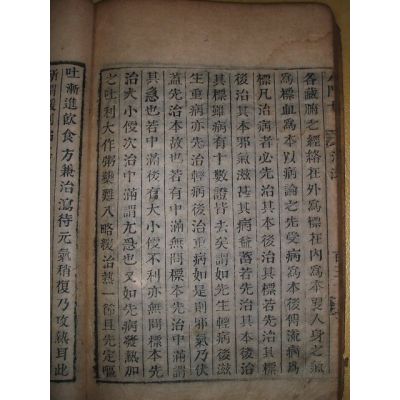 各藏腑之經絡在外爲標在內爲本更人身之氣
爲標血爲本以病論之先受病爲本後傳流病爲
標凡治病者必先治其本後治其標若先治其標
後治其本邪氣滋甚其病益蓄若先治其本後治
其標雖病有十數證皆去矣謂如先生輕病後滋
生重病亦先治輕病後治重病如是則邪氣乃伏
盖先治本故也若有中滿無問標本先治中滿謂
其急也若中滿後有大小便不利亦無問標本先
治大小便次治中滿謂尤急也又如先病發熱加
之吐利大作粥藥難入略緩治熱一節且先定嘔
吐漸進飲食方兼治瀉待元氣稍復乃攻熱耳此